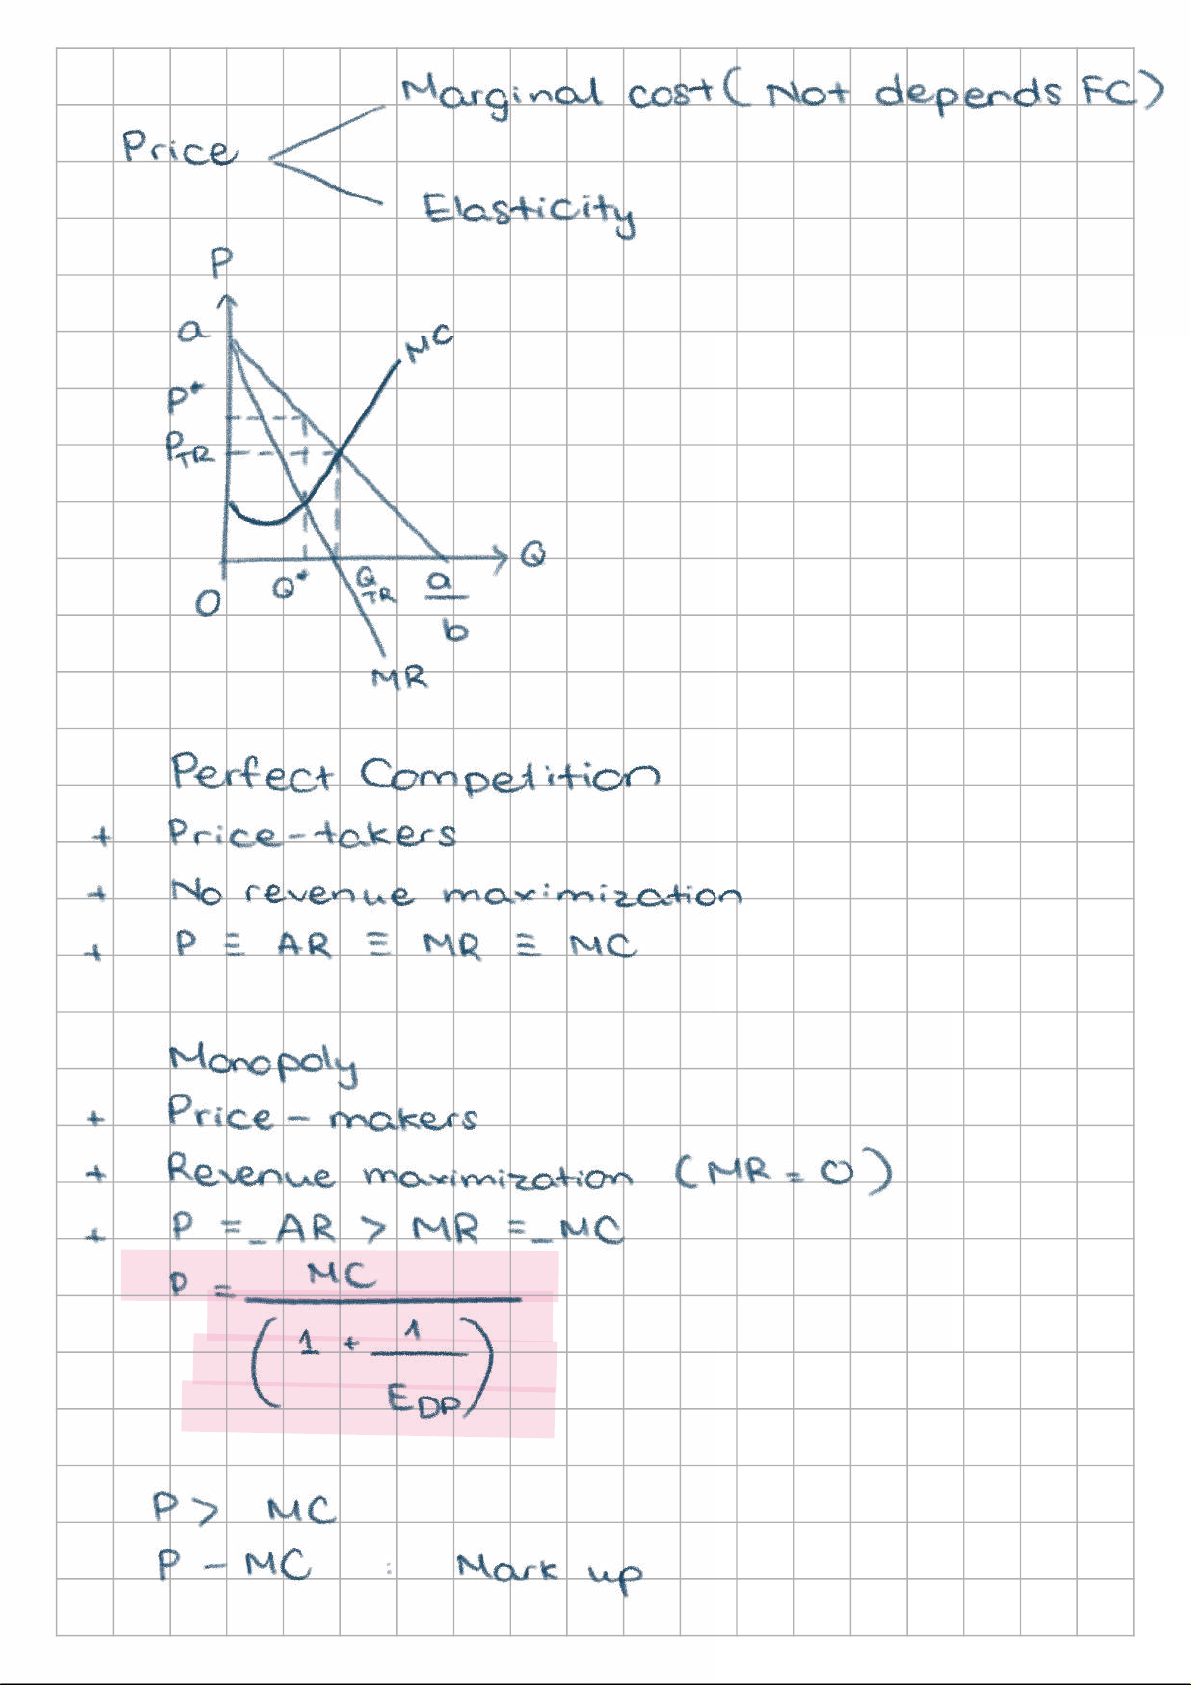 Marginal cost ( Not depends FC)
Price
Elasticity
P
a
MC
P*
P TR
Q
O
Q*
Q TR
a
b
MR
Perfect Competition
+ Price-takers
+ No revenue maximization
+ P ≡ AR ≡ MR ≡ MC
Monopoly
+ Price - makers
+ Revenue maximization (MR = 0)
+ P =_ AR > MR =_ MC
P = MC
( 1 + 1
E DP )
P > MC
P - MC : Mark up